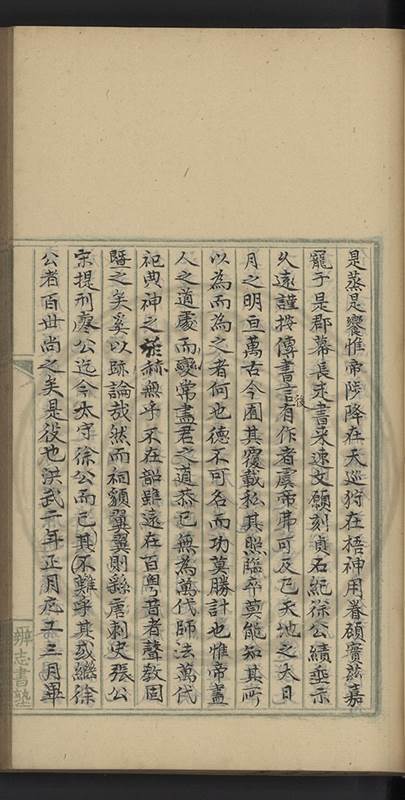 是蒸是饗惟帝陟降在天巡狩在梧神用眷顧實茲嘉
寵于是郡幕長走書采速文願刻貞石紀徐公績垂示
久遠謹按傳書言後有作者虞帝弗可及已天地之大日
月之明亘萬古今囿其覆載私其照臨卒莫能知其所
以為而為之者何也德不可名而功莫勝計也惟帝盡
人之道處而變常盡君之道恭已無為萬代師法萬代
祀典神之於赫無乎不在韶雖遠在百粵昔者聲教固
曁之矣奚以跡論哉然而祠額翼翼則繇唐刺史張公
宋提刑廖公迄今太守徐公而已其不難乎其或繼徐
公者百世尚之矣是役也洪武二年正月尼工三月畢
辨志書塾